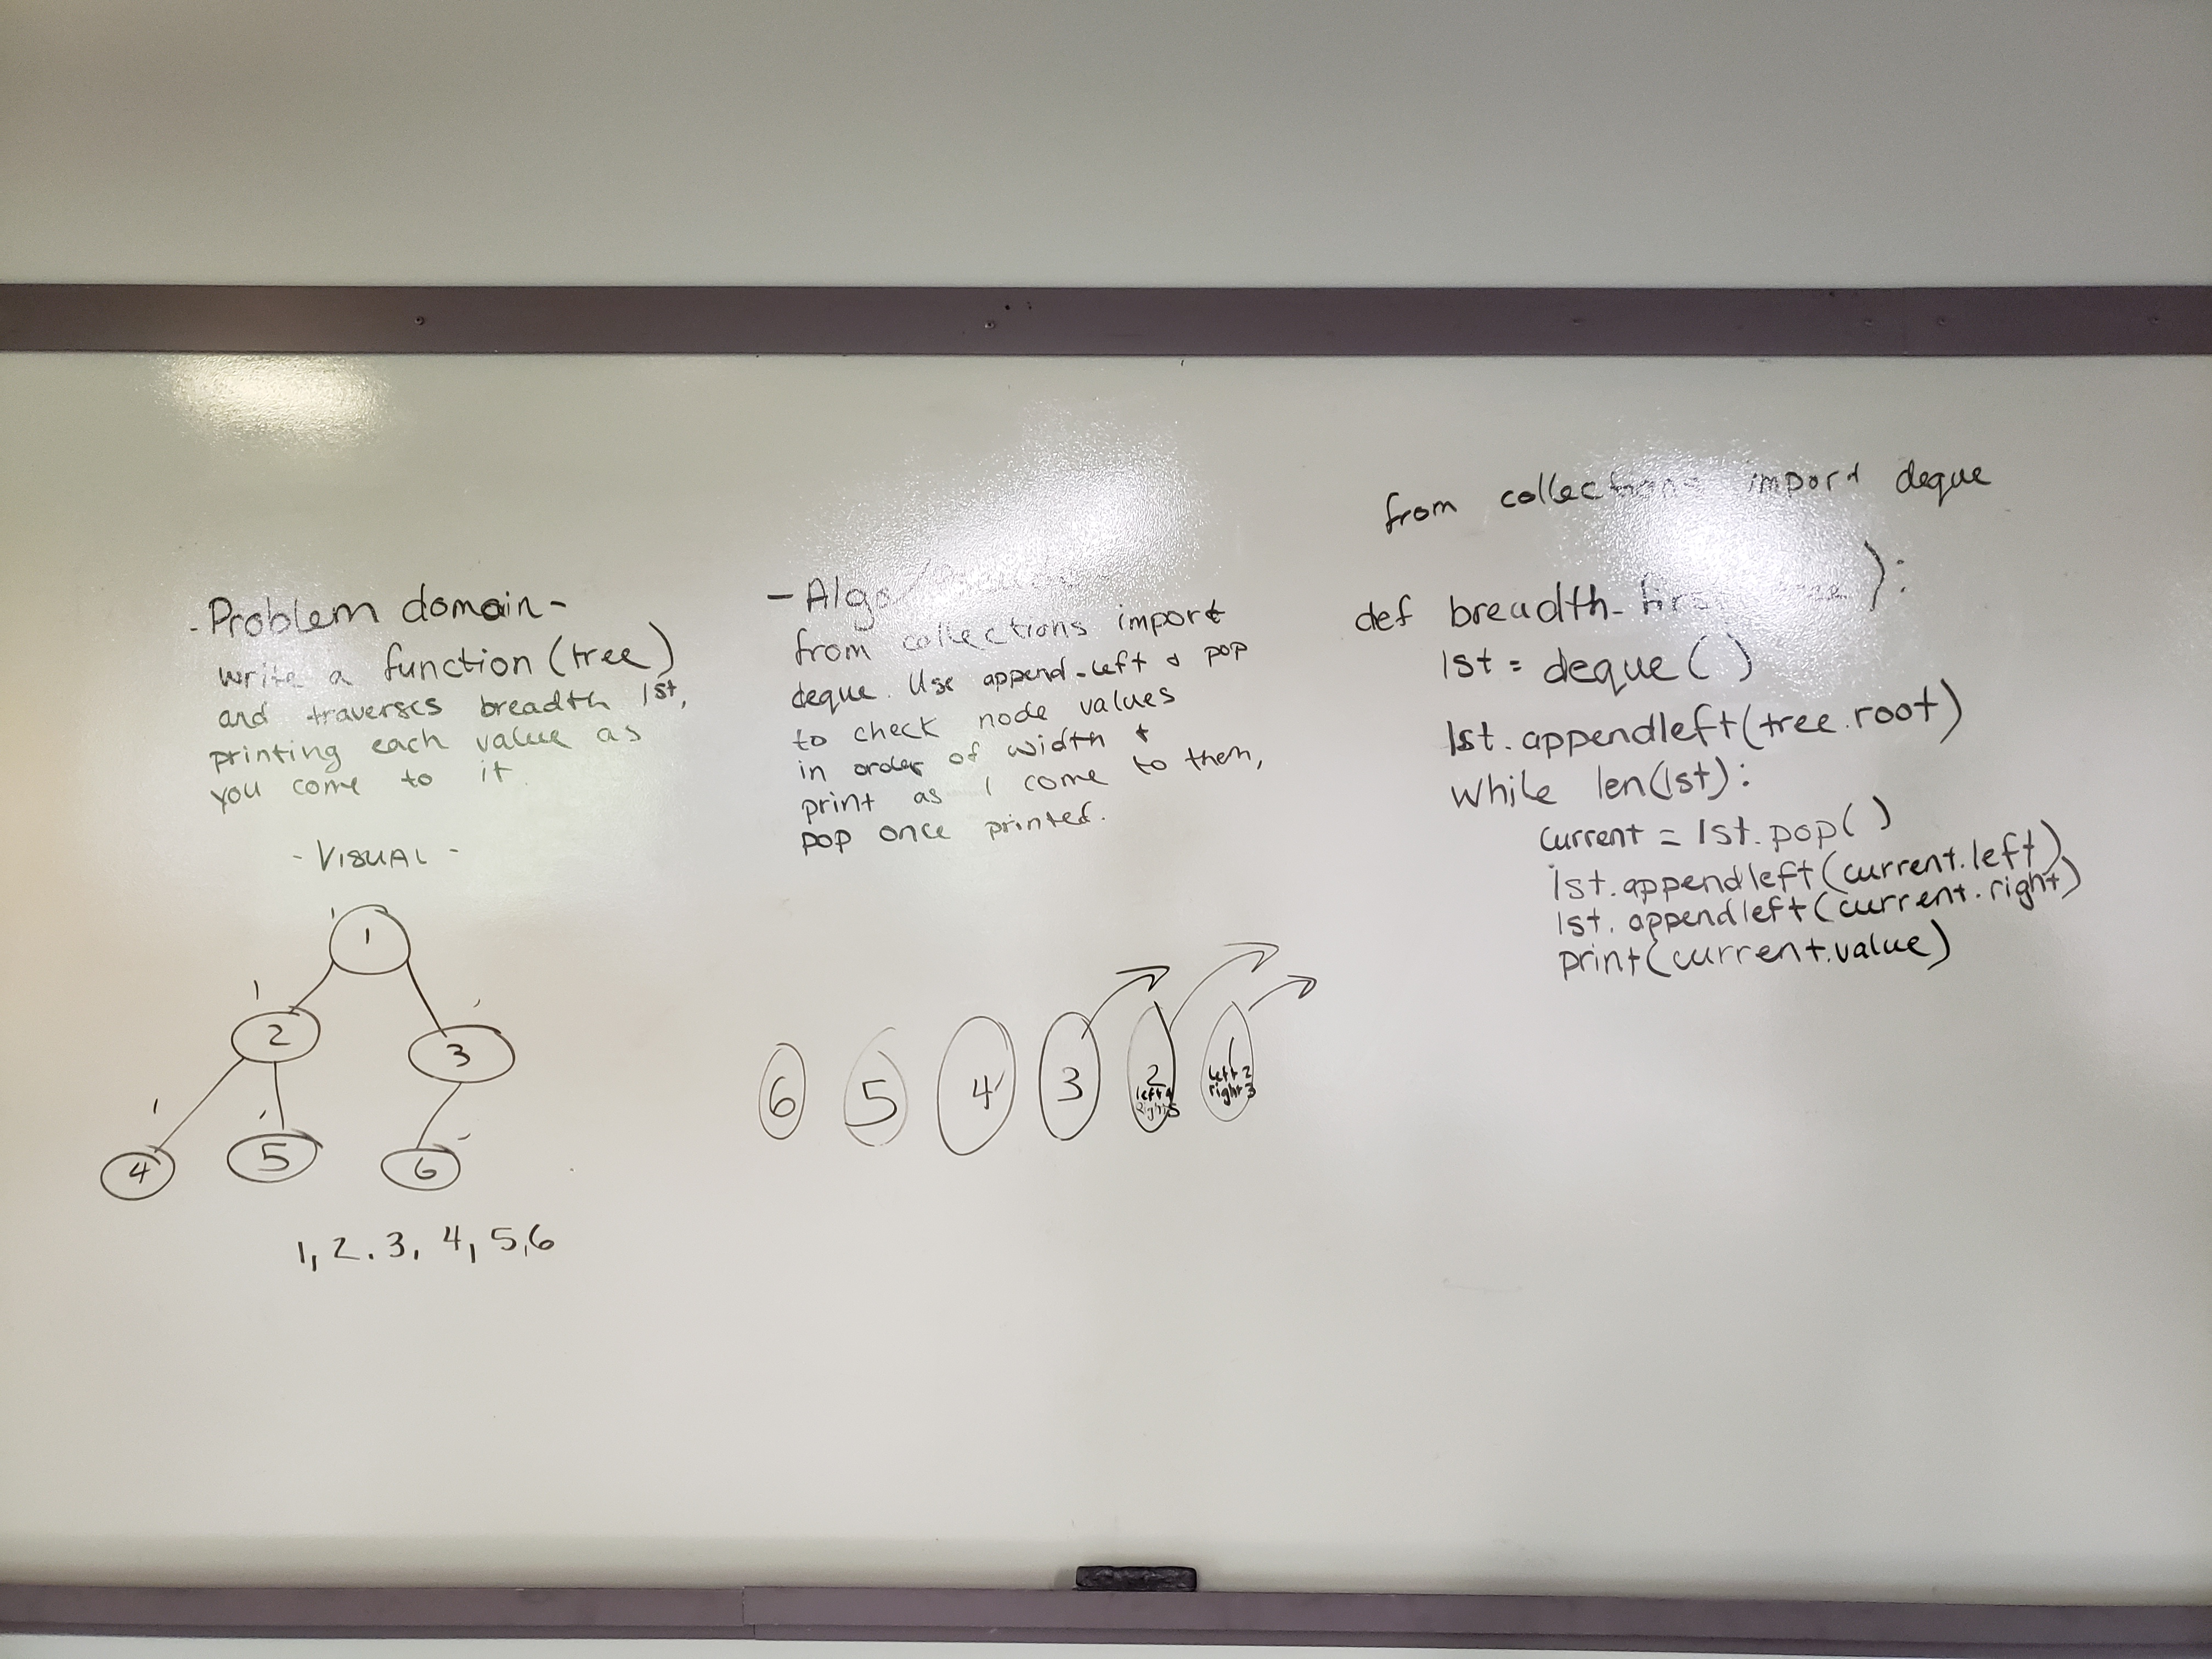 - Problem domain -
write a function (tree)
and traverses breadth 1st,
printing each value as
you come to it.
- VISUAL -
1
2
3
4
5
6
1, 2. 3, 4, 5,6
- Algo/
from collections import
deque. Use append-left & pop
to check node values
in order of width &
print as I come to them,
pop once printed.
6
5
4
3
2
left 4
Right 5
1
left 2
right 3
from collections import deque
def breadth_first tree):
lst = deque()
lst.appendleft(tree.root)
while len(lst):
current = lst.pop()
lst.appendleft(current.left)
lst.appendleft(current.right)
print(current.value)